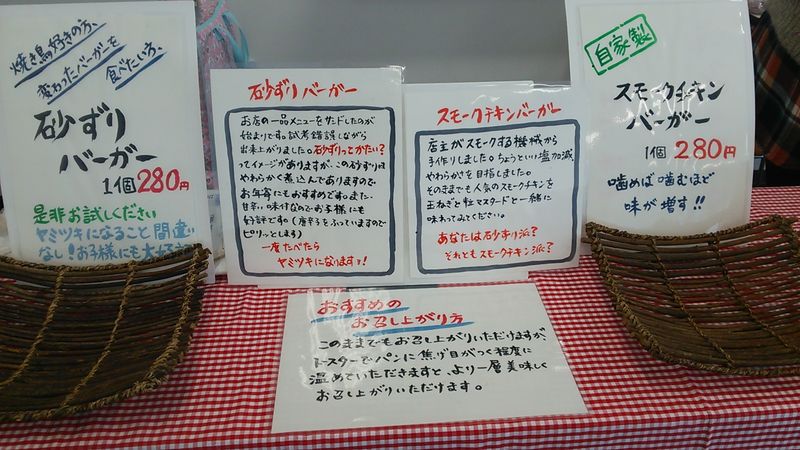 焼き鳥好きの方、
変わったバーガーを
食べたい方、
砂ずり
バーガー
1個280円
是非お試しください
ヤミツキになること間違い
なし!お子様にも大好評
砂ずりバーガー
お店の一品メニューをサンドしたのが
始まりです。試考錯誤しながら
出来上がりました。砂ずりってかたい?
ってイメージがありますが、この砂ずりは
やわらかく煮込んでありますので
お年寄にもおすすめです。また、
甘辛い味付なのでお子様にも
好評です。(唐辛子もふっていますので
ピリッとします)
一度たべたら
ヤミツキになります!
スモークチキンバーガー
店主がスモークする機械から
手作りしました。ちょうどいい塩加減、
やわらかさを目指しました。
そのままでも人気のスモークチキンを
玉ねぎと粒マスタードと一緒に
味わってみてください。
あなたは砂ずり派?
それともスモークチキン派?
自家製
スモークチキン
バーガー
1個280円
噛めば噛むほど
味が増す!!
おすすめの
お召し上がり方
このままでもお召し上がりいただけますが、
トースターでパンに焦げ目がつく程度に
温めていただきますと、より一層美味しく
お召し上がりいただけます。